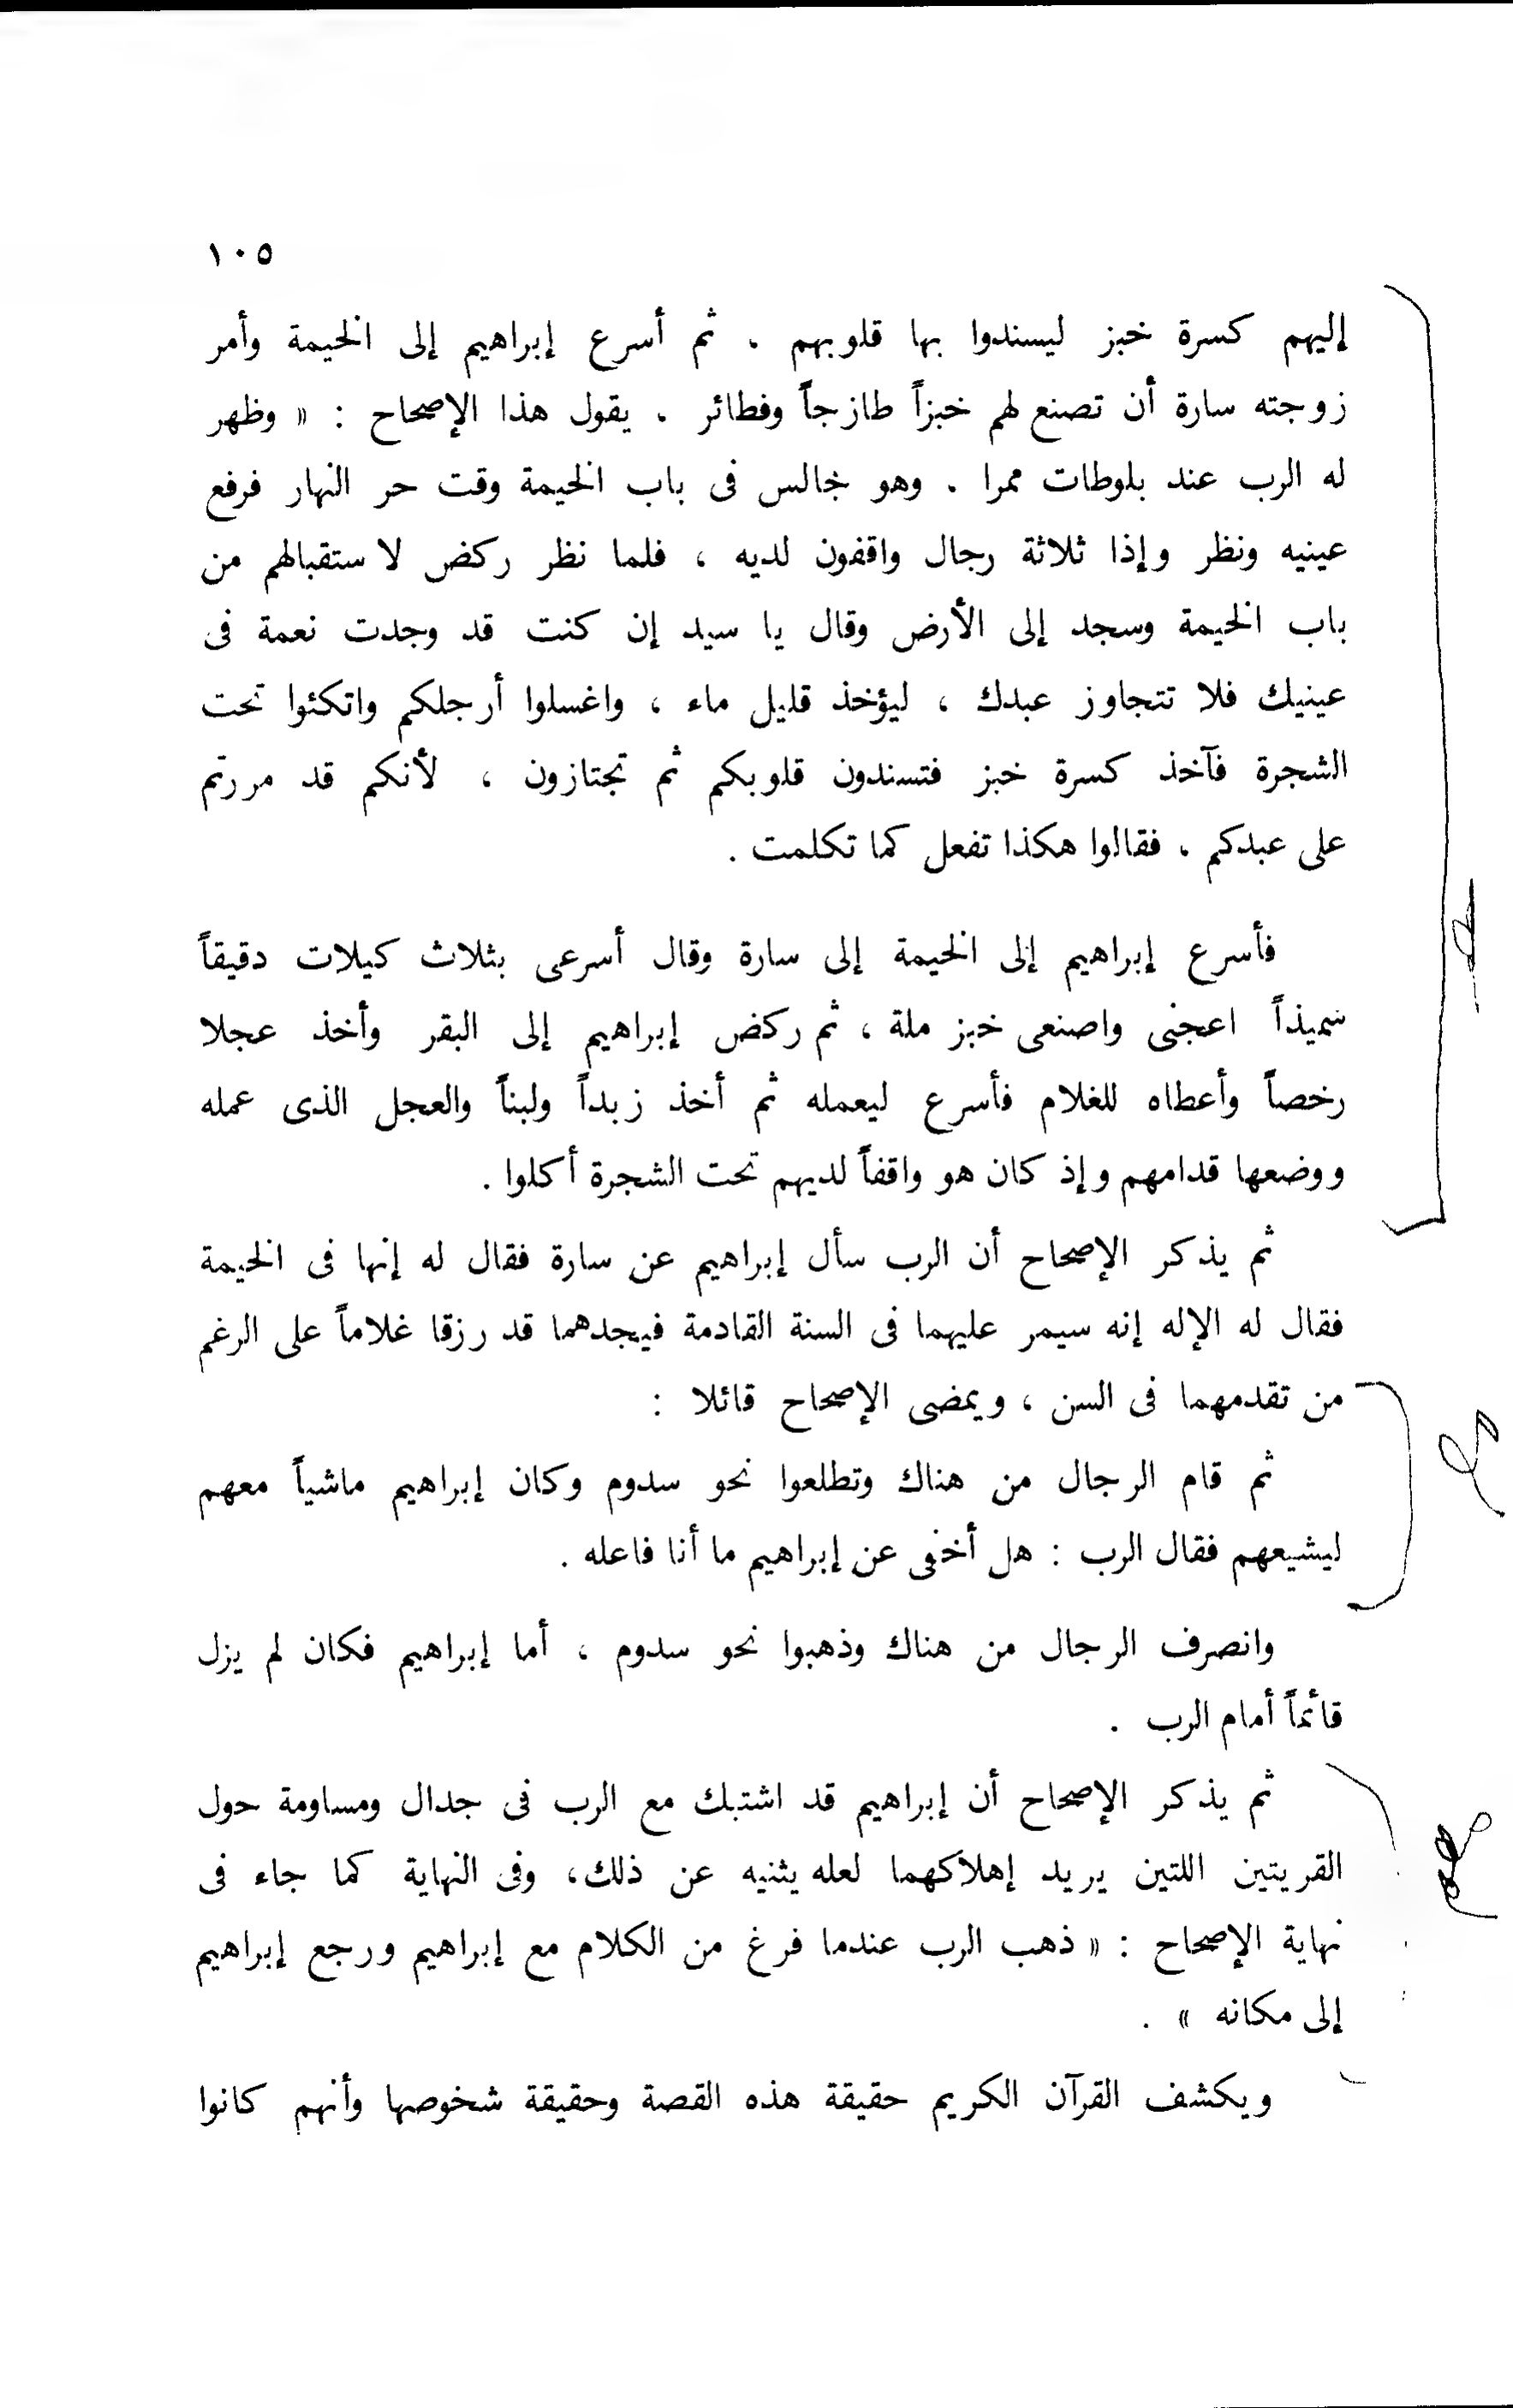 ١٠٥
إليهم كسرة خبز ليسندوا بها قلوبهم ، ثم أسرع إبراهيم إلى الخيمة وأمر
زوجته سارة أن تصنع لهم خبزاً طازجاً وفطائر . يقول هذا الإصحاح : « وظهر
له الرب عند بلوطات ممرا . وهو جالس فى باب الخيمة وقت حر النهار فرفع
عينيه ونظر وإذا ثلاثة رجال واقفون لديه ، فلما نظر ركض لاستقبالهم من
باب الخيمة وسجد إلى الأرض وقال يا سيد إن كنت قد وجدت نعمة فى
عينيك فلا تتجاوز عبدك ، ليؤخذ قليل ماء ، واغسلوا أرجلكم واتكئوا تحت
الشجرة فآخذ كسرة خبز فتسندون قلوبكم ثم تجتازون ، لأنكم قد مررتم
على عبدكم ، فقالوا هكذا تفعل كما تكلمت .
فأسرع إبراهيم إلى الخيمة إلى سارة وقال أسرعى بثلاث كيلات دقيقاً
سميذاً اعجنى واصنعى خبز ملة ، ثم ركض إبراهيم إلى البقر وأخذ عجلا
رخصاً وأعطاه للغلام فأسرع ليعمله ثم أخذ زبداً ولبناً والعجل الذى عمله
ووضعها قدامهم وإذ كان هو واقفاً لديهم تحت الشجرة أكلوا .
ثم يذكر الإصحاح أن الرب سأل إبراهيم عن سارة فقال له إنها فى الخيمة
فقال له الإله إنه سيمر عليهما فى السنة القادمة فيجدهما قد رزقا غلاماً على الرغم
من تقدمهما فى السن ، ويمضى الإصحاح قائلا :
ثم قام الرجال من هناك وتطلعوا نحو سدوم وكان إبراهيم ماشياً معهم
ليشيعهم فقال الرب : هل أخفى عن إبراهيم ما أنا فاعله .
وانصرف الرجال من هناك وذهبوا نحو سدوم ، أما إبراهيم فكان لم يزل
قائماً أمام الرب .
ثم يذكر الإصحاح أن إبراهيم قد اشتبك مع الرب فى جدال ومساومة حول
القريتين اللتين يريد إهلاكهما لعله يثنيه عن ذلك، وفى النهاية كما جاء فى
نهاية الإصحاح : « ذهب الرب عندما فرغ من الكلام مع إبراهيم ورجع إبراهيم
إلى مكانه » .
ويكشف القرآن الكريم حقيقة هذه القصة وحقيقة شخوصها وأنهم كانوا